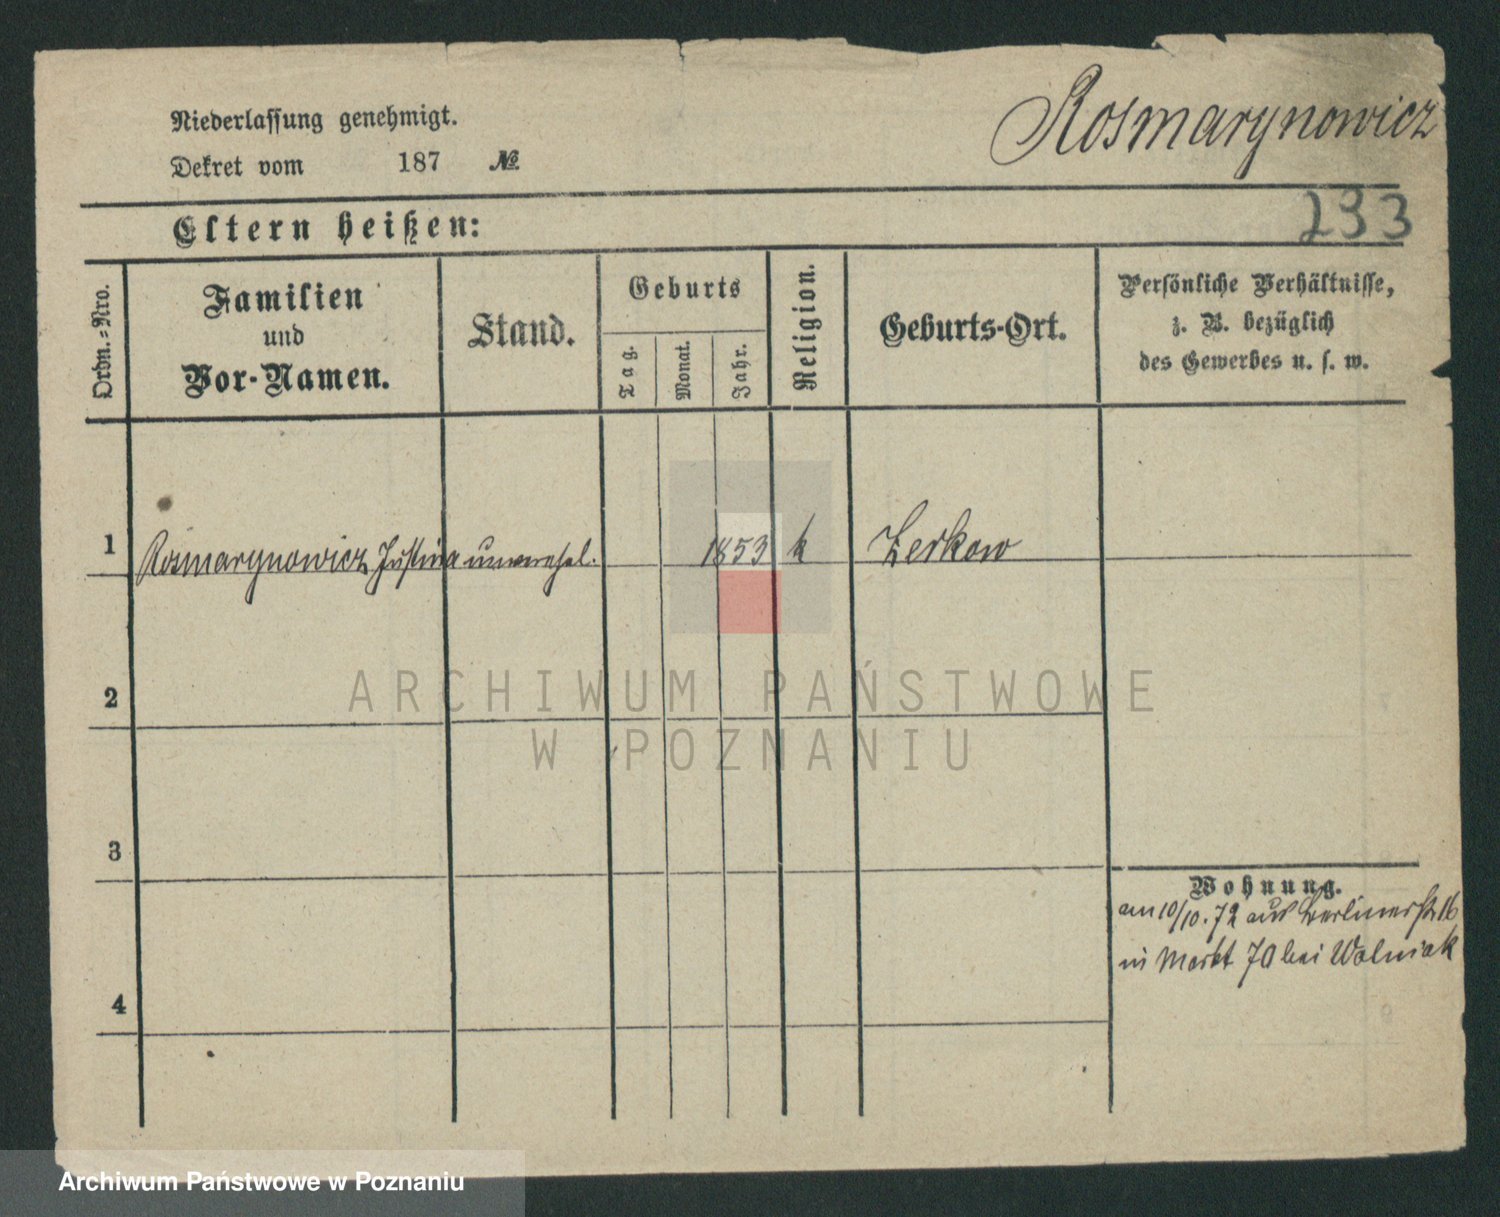 Niederlassung genehmigt.
Dekret vom 187 №
Rosmarynowicz
233
Eltern heißen:
Ordn.-Nro.
Familien und Vor-Namen.
Stand.
Geburts
Tag.
Monat.
Jahr.
Religion.
Geburts-Ort.
Persönliche Verhältnisse,
z. B. bezüglich
des Gewerbes u. s. w.
1 Rosmarynowicz Justina unverehel. 1853 k Zerkow
2
3
4
Wohnung.
am 10/10. 72 aus Berlinerstr 16
in Markt 70 bei Wolniak
ARCHIWUM PAŃSTWOWE
W POZNANIU
Archiwum Państwowe w Poznaniu